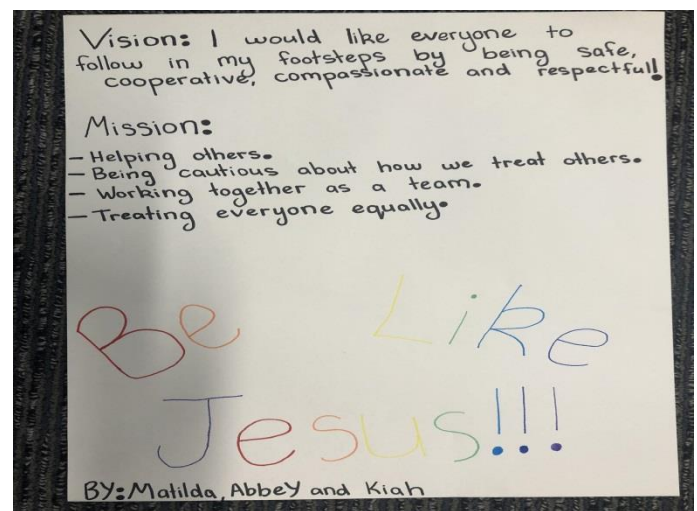 Vision: I would like everyone to
follow in my footsteps by being safe,
cooperative, compassionate and respectful!
Mission:
- Helping others.
- Being cautious about how we treat others.
- Working together as a team.
- Treating everyone equally.
Be Like
Jesus!!!
BY: Matilda, Abbey and Kiah